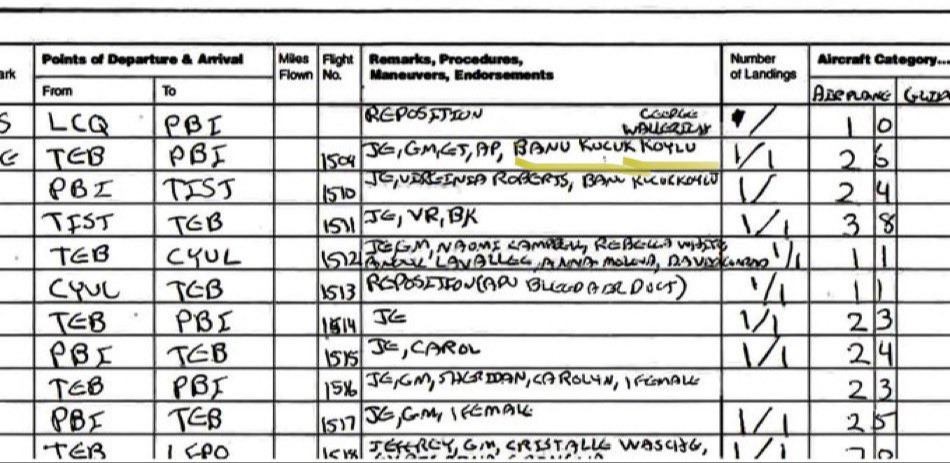 Points of Departure & Arrival Miles Flight Remarks, Procedures, Number Aircraft Category...
ark From To Flown No. Maneuvers, Endorsements of Landings AIRPLANE
S LCQ PBI REPOSITION GEORGE / 1 0
TEB PBI 1509 JE, GM, ET, AP, BANU KUCUK KOYLU 1/1 2 6
PBI TIST 1510 JE, VIRGINIA ROBERTS, BANU KUCUKKOYLU 1/ 2 4
TIST TEB 1511 JE, VR, BK 1/1 3 8
TEB CYUL 1512 JE GM, NAOMI CAMPBELL, REBECCA WHITE 1/1 1 1
LAVALLEE, ANNA MOLOVA, DAVID
CYUL TEB 1513 REPOSITION (APU BLEED AIR DUCT) 1/1 1 1
TEB PBI 1514 JE 1/1 2 3
PBI TEB 1515 JE, CAROL 1/1 2 4
TEB PBI 1516 JE, GM, SHERIDAN, CAROLYN, 1 FEMALE 2 3
PBI TEB 1517 JE, GM, 1 FEMALE 1/1 2 5
TEB JEFFREY, GM, CRISTALLE WASCHE, 1/1